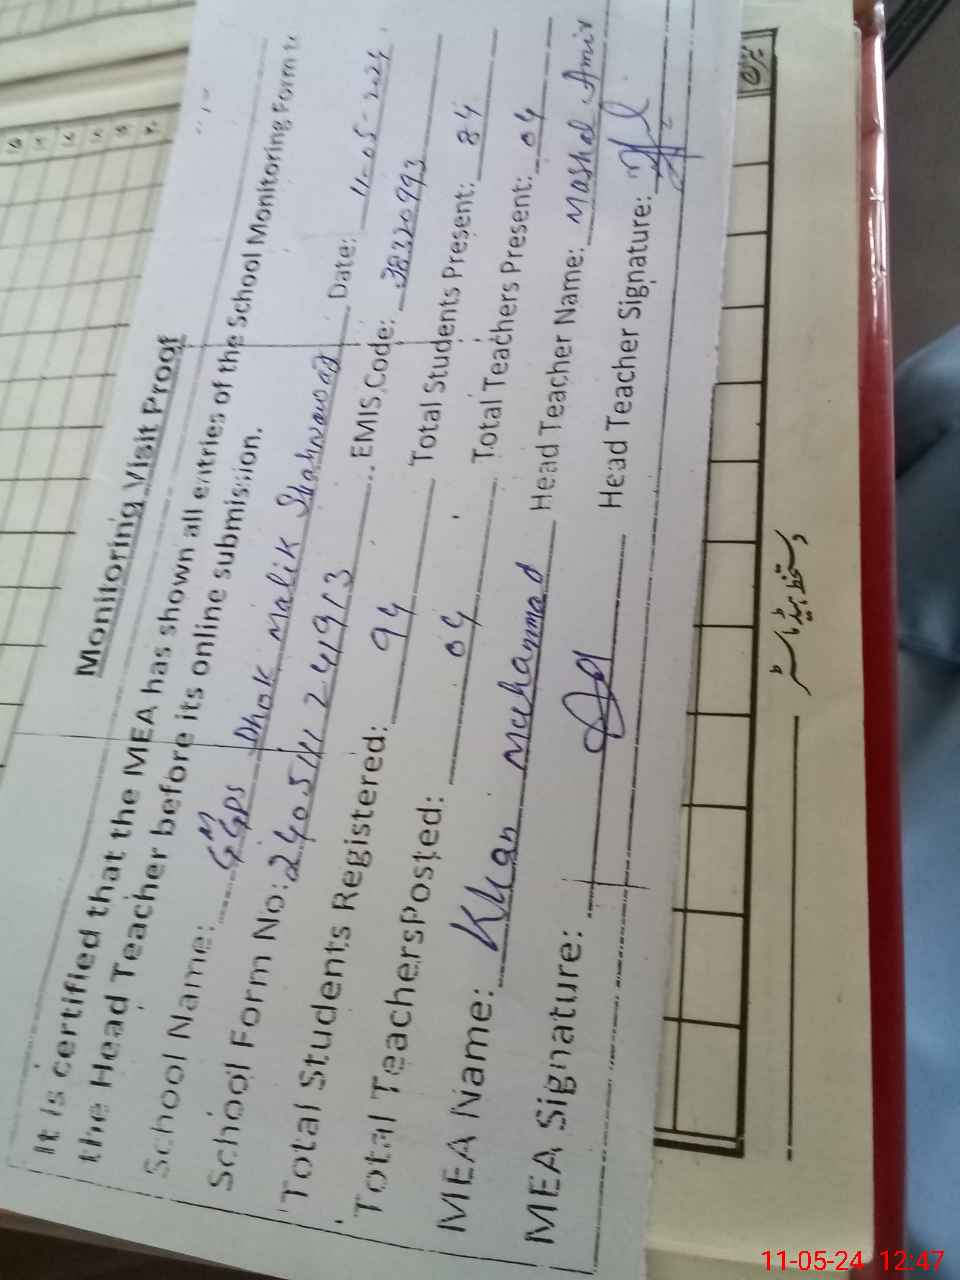 Monitoring Visit Proof
It is certified that the MEA has shown all entries of the School Monitoring Form to
the Head Teacher before its online submission.
School Name: GMGPS Dhok Malik Shahnawaz Date: 11-05-2024
School Form No: 2405111241913 EMIS Code: 38320993
Total Students Registered: 94 Total Students Present: 84
Total TeachersPosted: 04 Total Teachers Present: 04
MEA Name: Khan Muhammad Head Teacher Name: Mashal Amir
MEA Signature: Head Teacher Signature:
دستخط ہیڈ ماسٹر
11-05-24 12:47